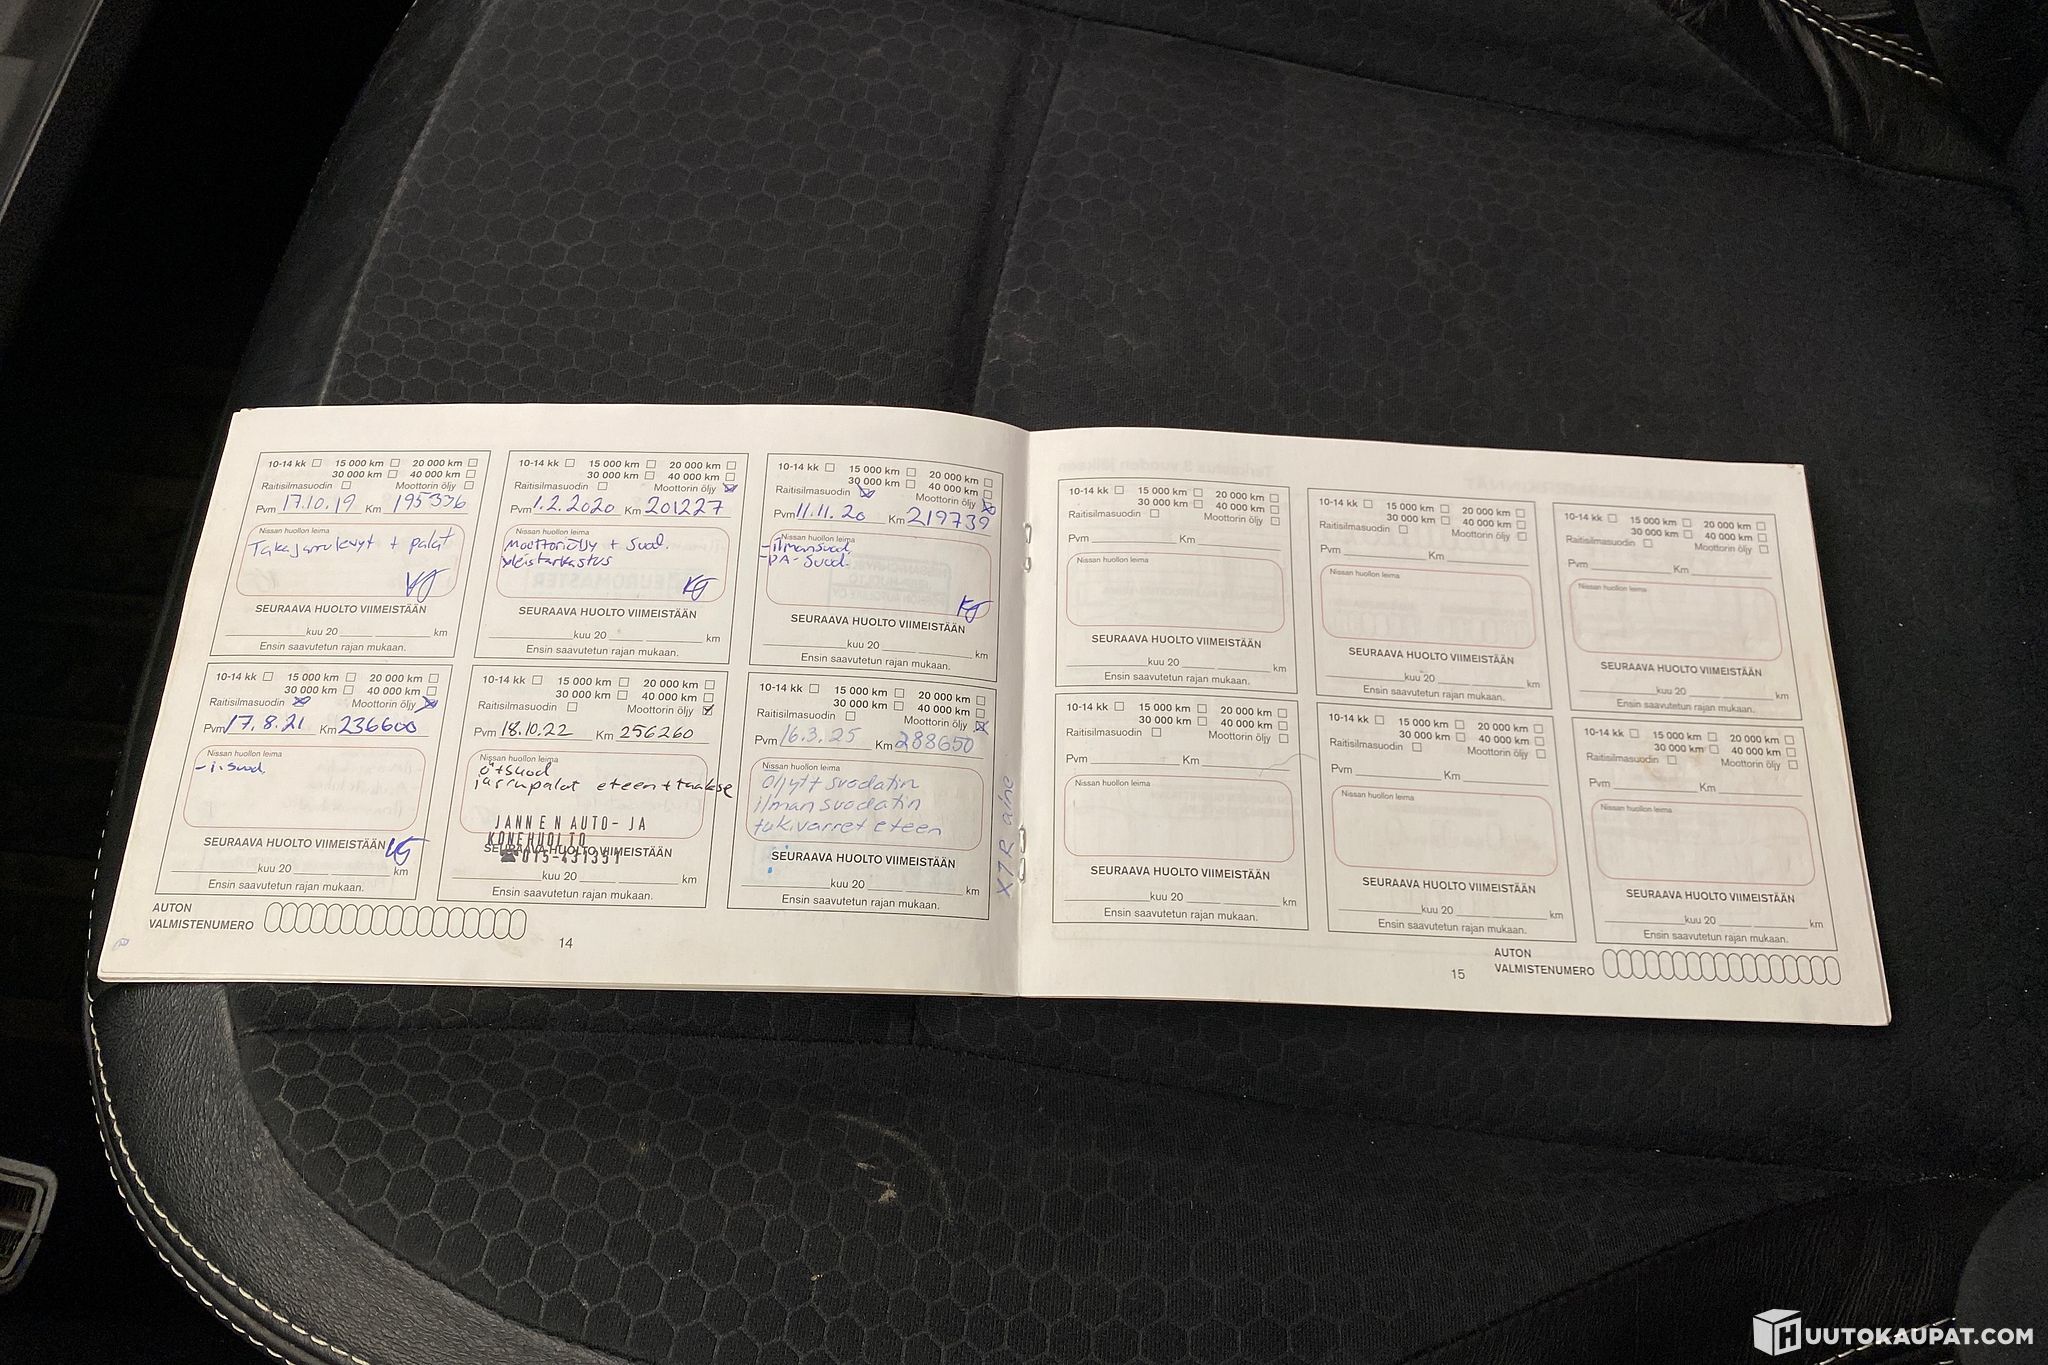 10-14 kk 15 000 km 20 000 km
30 000 km 40 000 km
Raitisilmasuodin Moottorin öljy
Pvm 17.10.19 Km 195336
Nissan huollon leima
Takajarrulevyt + palat
KJ
SEURAAVA HUOLTO VIIMEISTÄÄN
kuu 20 km
Ensin saavutetun rajan mukaan.
10-14 kk 15 000 km 20 000 km
30 000 km 40 000 km
Raitisilmasuodin Moottorin öljy
Pvm 1.2.2020 Km 201227
Nissan huollon leima
Moottoriöljy + Suod.
yleistarkastus
KJ
SEURAAVA HUOLTO VIIMEISTÄÄN
kuu 20 km
Ensin saavutetun rajan mukaan.
10-14 kk 15 000 km 20 000 km
30 000 km 40 000 km
Raitisilmasuodin Moottorin öljy
Pvm 11.11.20 Km 219739
Nissan huollon leima
- ilmansuod,
- PA-suod.
KJ
SEURAAVA HUOLTO VIIMEISTÄÄN
kuu 20 km
Ensin saavutetun rajan mukaan.
10-14 kk 15 000 km 20 000 km
30 000 km 40 000 km
Raitisilmasuodin Moottorin öljy
Pvm 17.8.21 Km 236600
Nissan huollon leima
- i.suod.
SEURAAVA HUOLTO VIIMEISTÄÄN KJ
kuu 20 km
Ensin saavutetun rajan mukaan.
10-14 kk 15 000 km 20 000 km
30 000 km 40 000 km
Raitisilmasuodin Moottorin öljy
Pvm 18.10.22 Km 256260
Nissan huollon leima
ö+suod
jarrupalat eteen + taakse
JANNEN AUTO- JA
KONEHUOLTO
SEURAAVA HUOLTO VIIMEISTÄÄN
☎015-431351
kuu 20 km
Ensin saavutetun rajan mukaan.
10-14 kk 15 000 km 20 000 km
30 000 km 40 000 km
Raitisilmasuodin Moottorin öljy
Pvm 16.3.25 Km 288650
Nissan huollon leima
öljyt+ suodatin
ilman suodatin
tukivarret eteen
SEURAAVA HUOLTO VIIMEISTÄÄN
kuu 20 km
Ensin saavutetun rajan mukaan.
X1R aine
AUTON
VALMISTENUMERO
14
10-14 kk 15 000 km 20 000 km
30 000 km 40 000 km
Raitisilmasuodin Moottorin öljy
Pvm Km
Nissan huollon leima
SEURAAVA HUOLTO VIIMEISTÄÄN
kuu 20 km
Ensin saavutetun rajan mukaan.
10-14 kk 15 000 km 20 000 km
30 000 km 40 000 km
Raitisilmasuodin Moottorin öljy
Pvm Km
Nissan huollon leima
SEURAAVA HUOLTO VIIMEISTÄÄN
kuu 20 km
Ensin saavutetun rajan mukaan.
10-14 kk 15 000 km 20 000 km
30 000 km 40 000 km
Raitisilmasuodin Moottorin öljy
Pvm Km
Nissan huollon leima
SEURAAVA HUOLTO VIIMEISTÄÄN
kuu 20 km
Ensin saavutetun rajan mukaan.
10-14 kk 15 000 km 20 000 km
30 000 km 40 000 km
Raitisilmasuodin Moottorin öljy
Pvm Km
Nissan huollon leima
SEURAAVA HUOLTO VIIMEISTÄÄN
kuu 20 km
Ensin saavutetun rajan mukaan.
10-14 kk 15 000 km 20 000 km
30 000 km 40 000 km
Raitisilmasuodin Moottorin öljy
Pvm Km
Nissan huollon leima
SEURAAVA HUOLTO VIIMEISTÄÄN
kuu 20 km
Ensin saavutetun rajan mukaan.
10-14 kk 15 000 km 20 000 km
30 000 km 40 000 km
Raitisilmasuodin Moottorin öljy
Pvm Km
Nissan huollon leima
SEURAAVA HUOLTO VIIMEISTÄÄN
kuu 20 km
Ensin saavutetun rajan mukaan.
AUTON
VALMISTENUMERO
15
HUUTOKAUPAT.COM